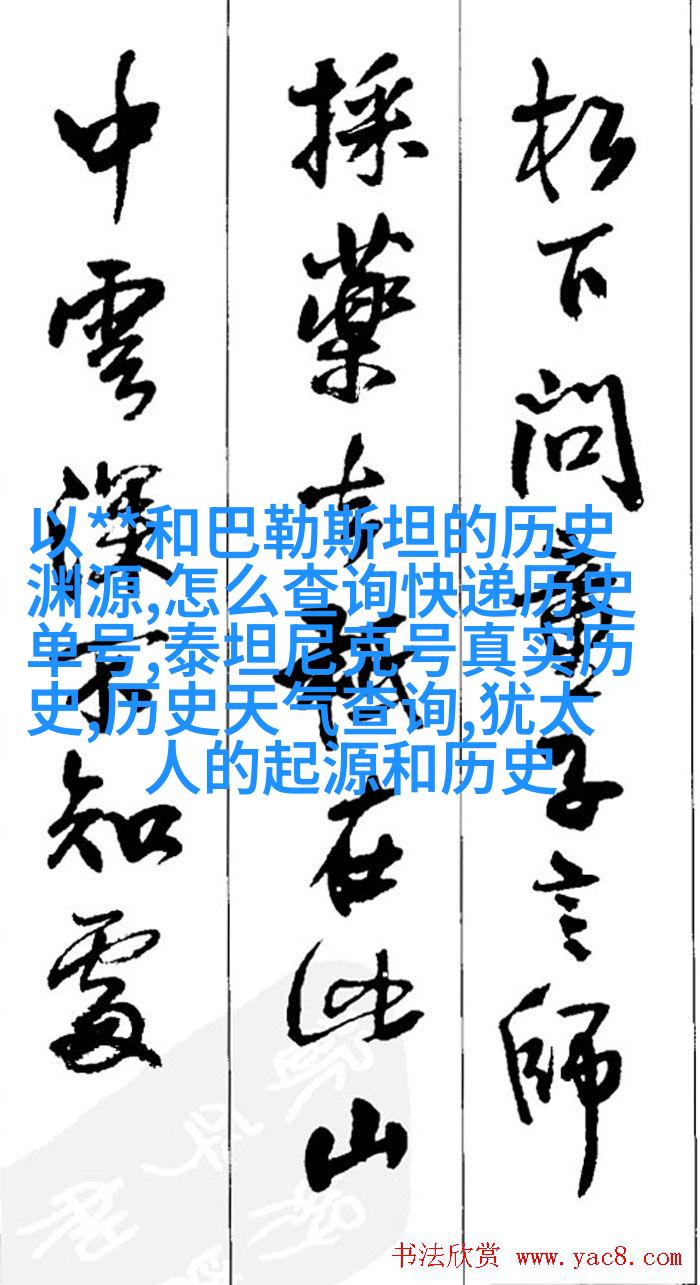 松下问童子言師
採藥去祇在此山
中雲深不知處
以**和巴勒斯坦的历史
渊源,怎么查询快递历史
单号,泰坦尼克号真实历
史,历史天气查询,犹太
人的起源和历史
书法欣赏 www.yac8.com